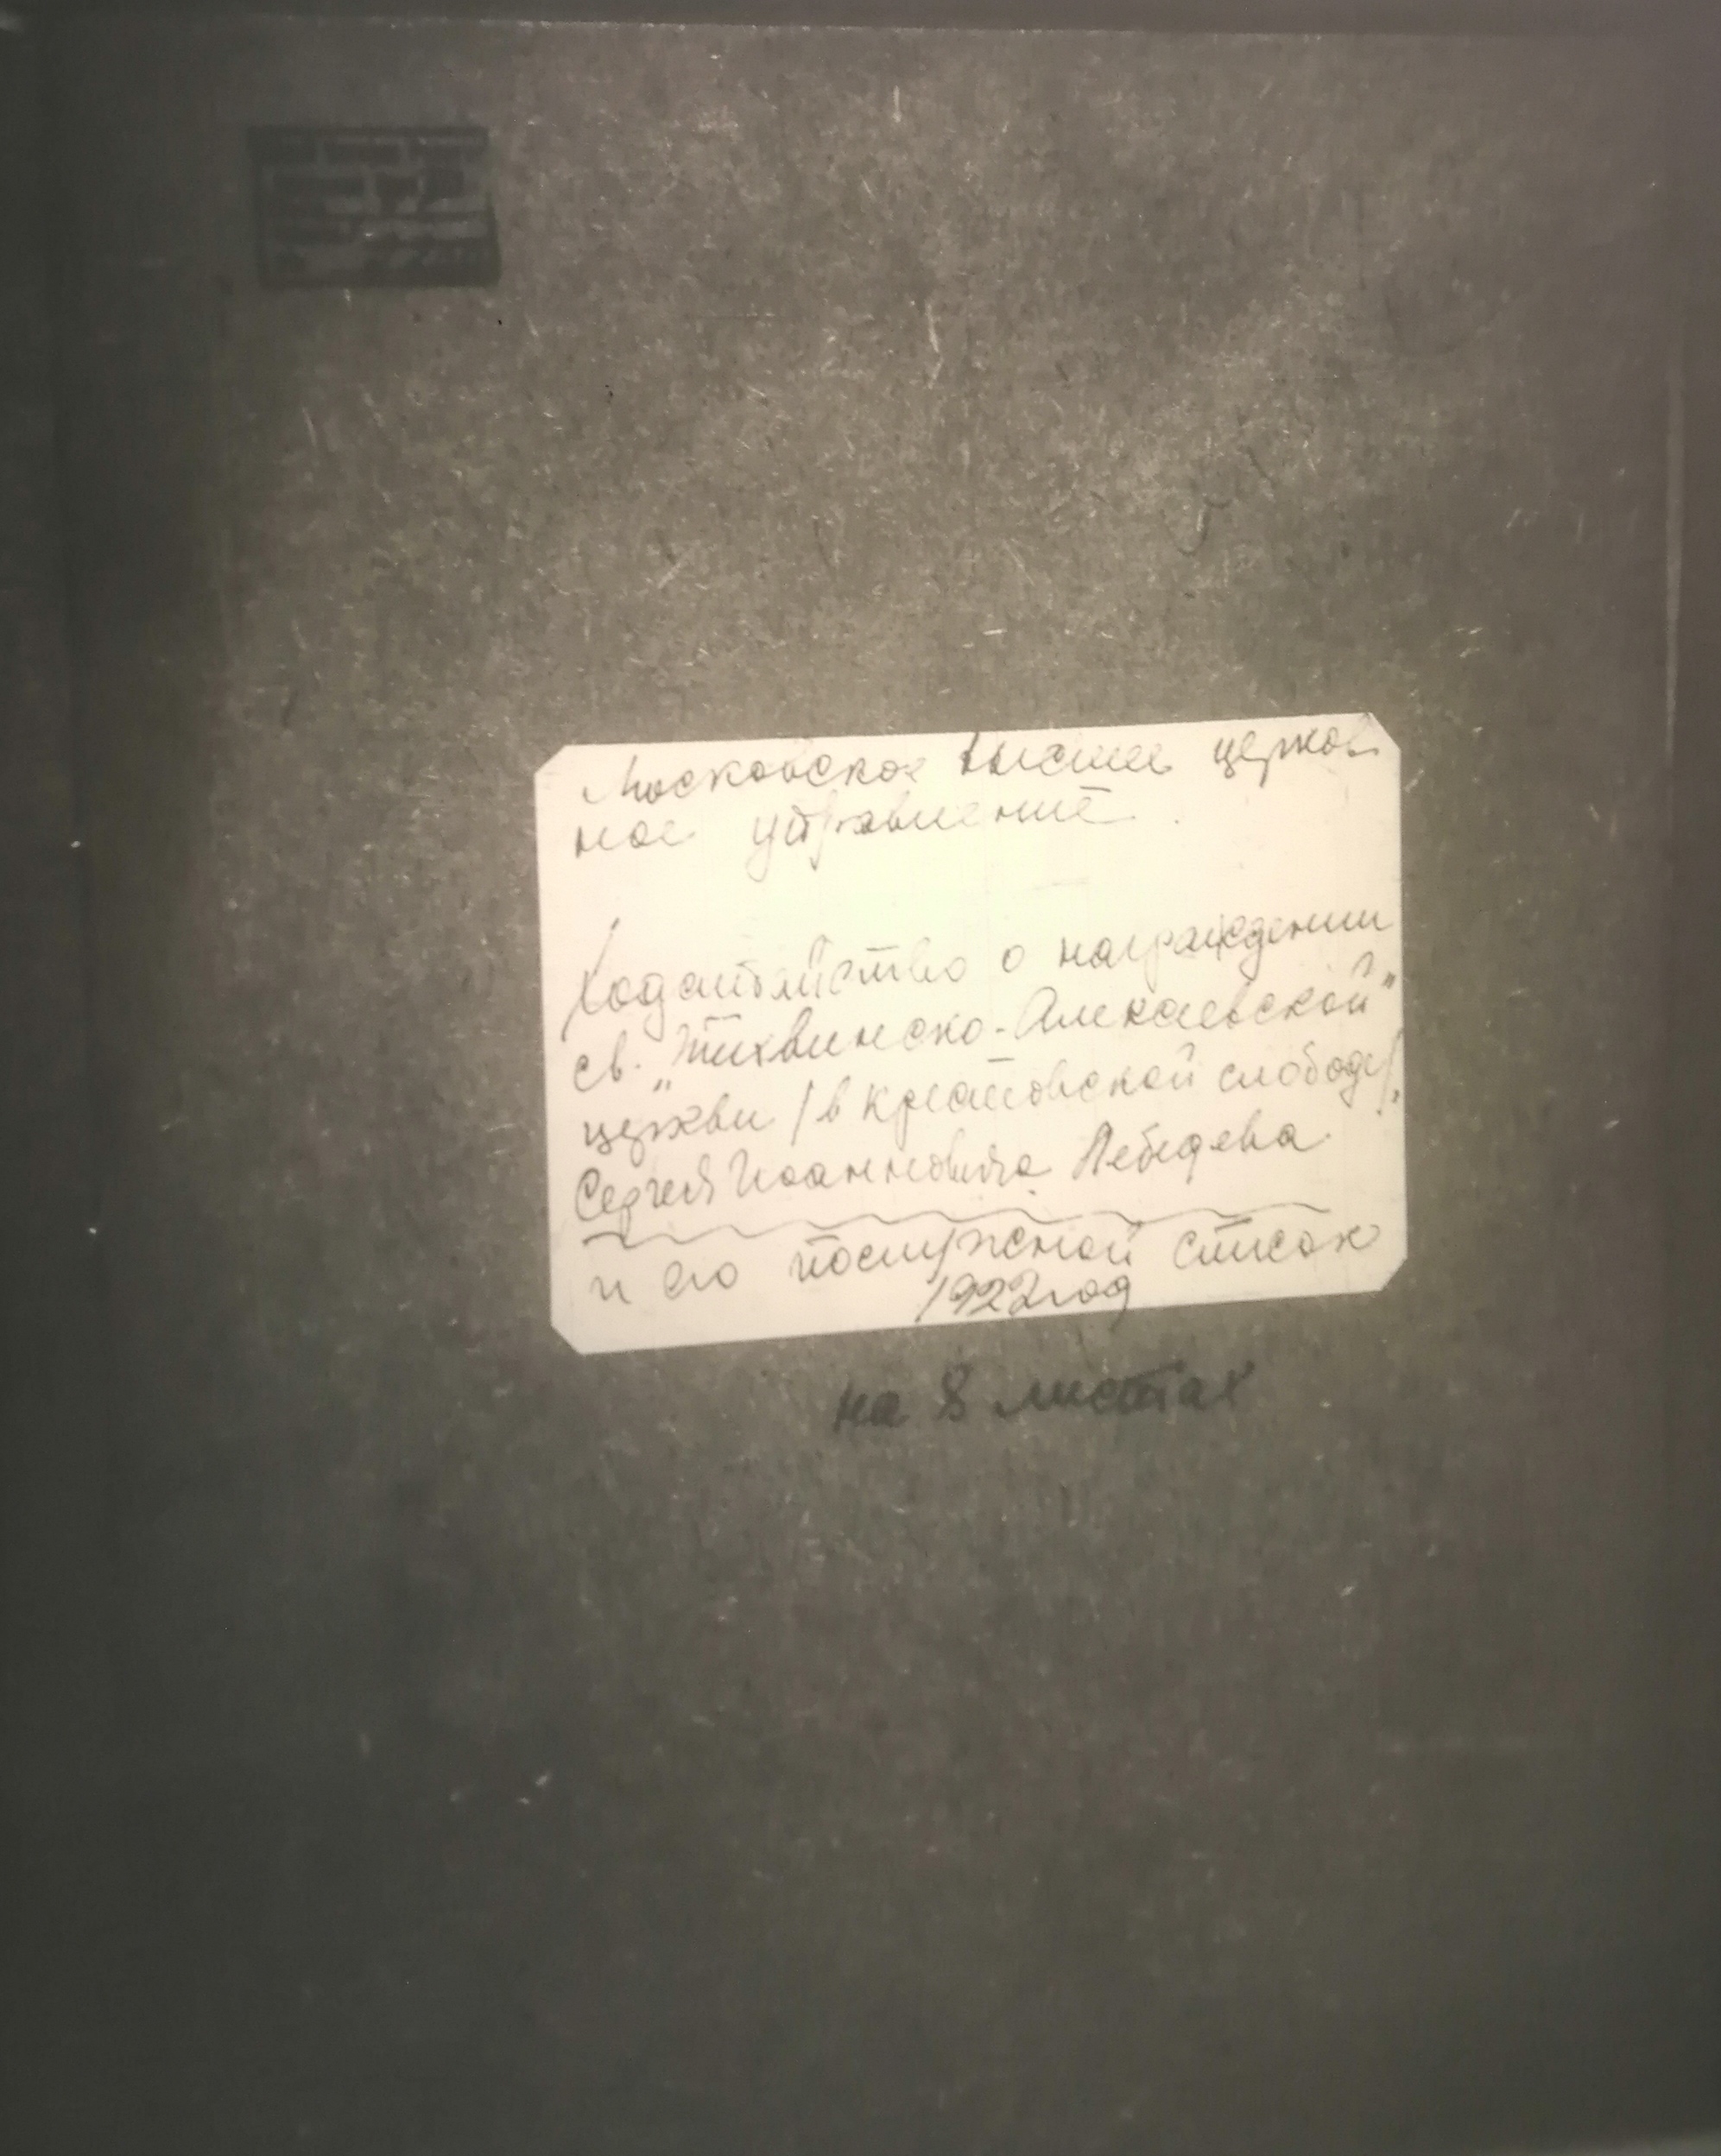 Московское высшее церков
ное управление.
Ходатайство о награждении
св. "Тихвинско-Алексеевской"
церкви /в Крестовской слободе/.
Сергея Иоанновича Лебедева.
и его послужной список
1922 год
на 8 листах